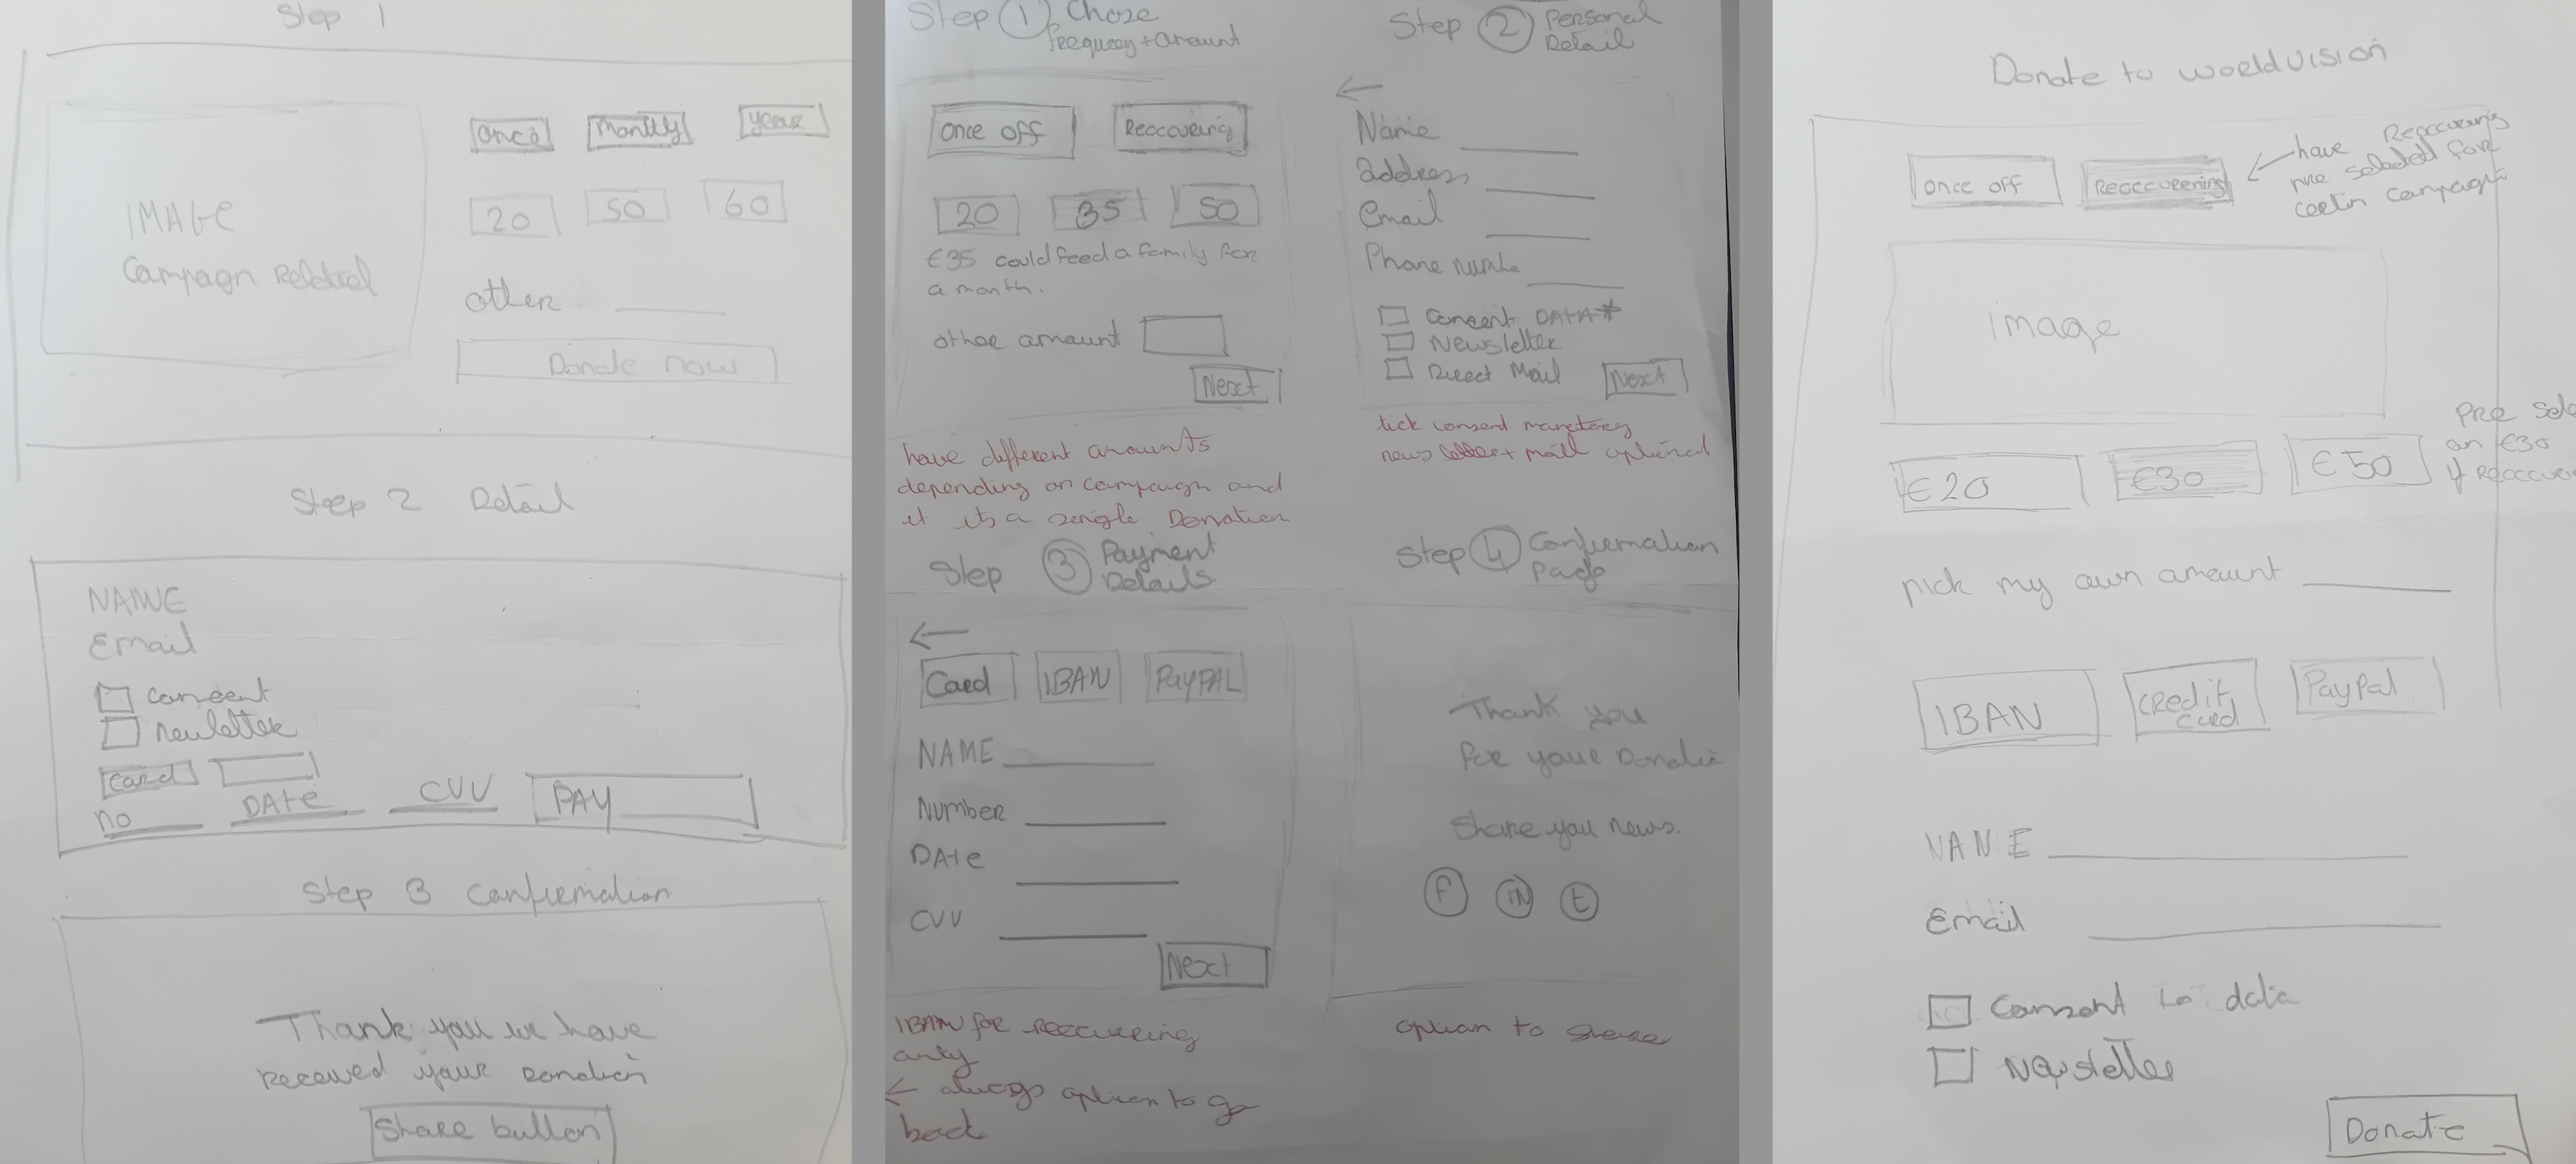 Step 1
Once
Montly
year
20
50
60
IMAGE
Campagn Related
other
Donate now
Step 2 Detail
NAME
Email
consent
newletter
card
no
DAte
CVV
PAY
Step 3 Confirmation
Thank you we have
received your donation
Share button
Step 1 Chose
frequecy + amount
once off
Reoccureing
20
35
50
€35 could feed a family for
a month.
other amount
Next
have different amounts
depending on campaign and
if its a single Donation
Step 2 Personal
Detail
←
Name
address
Email
Phone
Consent DATA*
Newsletter
Direct Mail
Next
tick consent
news letter + mail optional
Step 3 Payment
Details
←
Card
IBAN
PayPAL
NAME
Number
DAte
CVV
Next
IBAN for reccureing
only
← always option to go
back
Step 4 Confirmation
Page
Thank you
for your
Share you news.
f
IN
t
option to share
Donate to worldvision
once off
Reoccureening
← have Reoccureing
pre selected for
campaign
Image
€20
€30
€50
Pre
an €30
if
pick my own amount
IBAN
credit
card
PayPal
NAME
Email
Consent to data
Newsletter
Donate